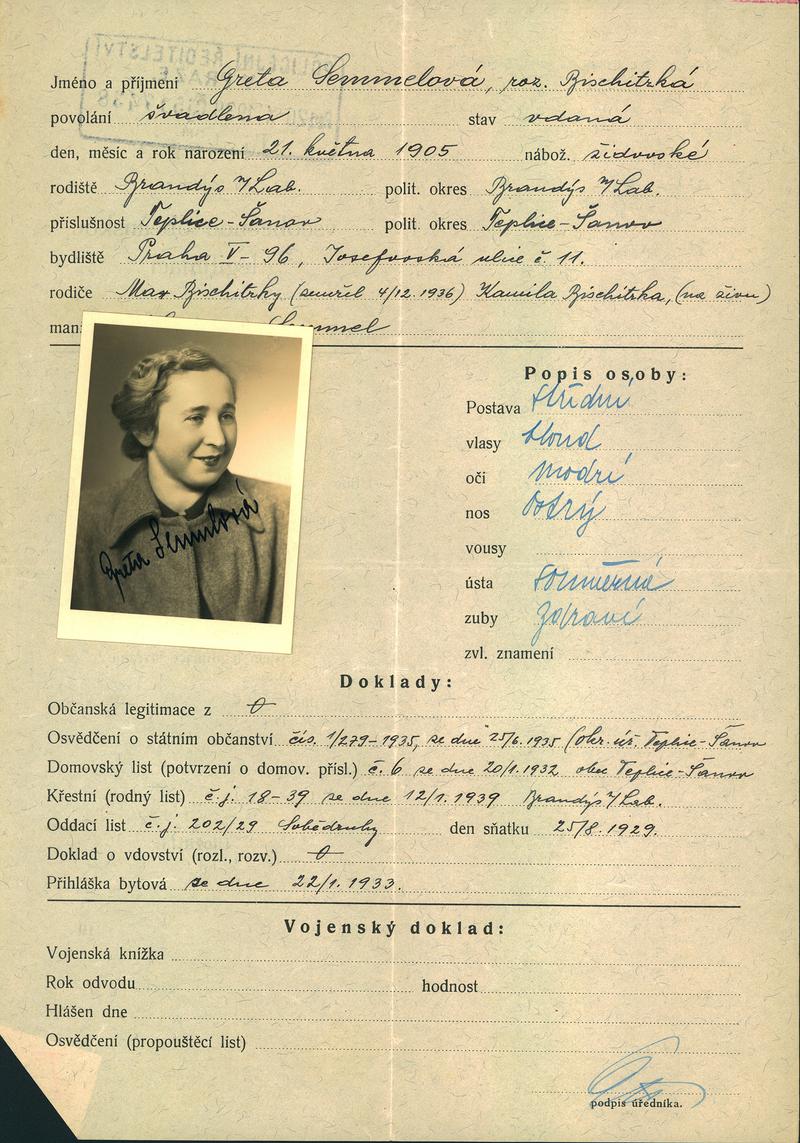 Jméno a příjmení Greta Semmelová, roz. Bischitzká
povolání švadlena stav vdaná
den, měsíc a rok narození 21. května 1905 nábož. židovské
rodiště Brandýs n/Lab. polit. okres Brandýs n/Lab.
příslušnost Teplice-Šanov polit. okres Teplice-Šanov
bydliště Praha V-96, Josefovská ulice č 11.
rodiče Max Bischitzky (zemřel 4/12. 1936) Kamila Bischitzka, (na živu)
man Semmel
Popis osoby:
Postava střední
vlasy blond
oči modré
nos ostrý
vousy
ústa souměrná
zuby zdravé
zvl. znamení
Greta Semmlová
Doklady:
Občanská legitimace z 0
Osvědčení o státním občanství čís. 1/279-1935, ze dne 25/6. 1935 (okr. úř. Teplic-Šanov
Domovský list (potvrzení o domov. přísl.) č. 6 ze dne 20/1. 1932 obec Teplic-Šanov
Křestní (rodný list) č.j. 18-39 ze dne 12/1. 1939 Brandýs n/Lab.
Oddací list č.j. 202/29 Sobědruhy den sňatku 25/8. 1929.
Doklad o vdovství (rozl., rozv.) 0
Přihláška bytová ze dne 22/1. 1933.
Vojenský doklad:
Vojenská knížka
Rok odvodu hodnost
Hlášen dne
Osvědčení (propouštěcí list)
podpis úředníka.